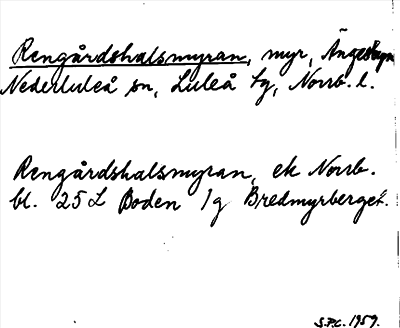 Rengårdshalsmyran, myr, Ängesbyn
Nederluleå sn, Luleå tg, Norrb. l.
Rengårdshalsmyran, ek Norrb.
bl. 25 L Boden 1g Bredmyrberget.
S.P.C. 1959.